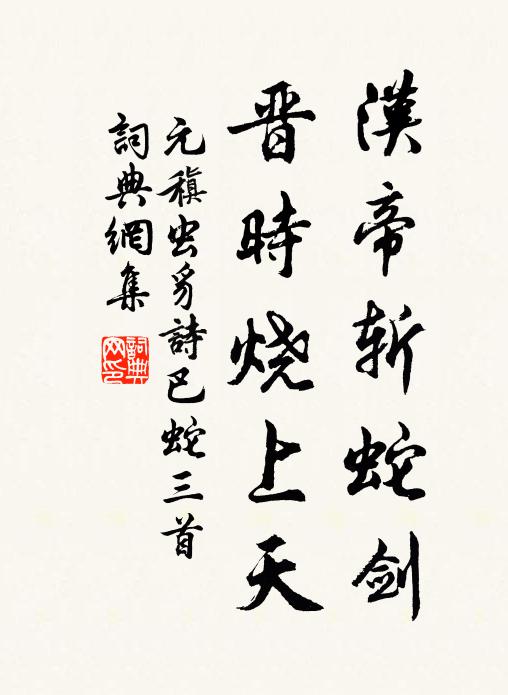 漢帝斬蛇剑
晋時烧上天
元稹虫豸詩巴蛇三首
詞典網集
詞典
网印